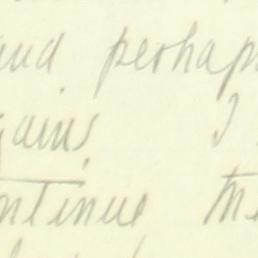 and perhaps
gains I
ontinue